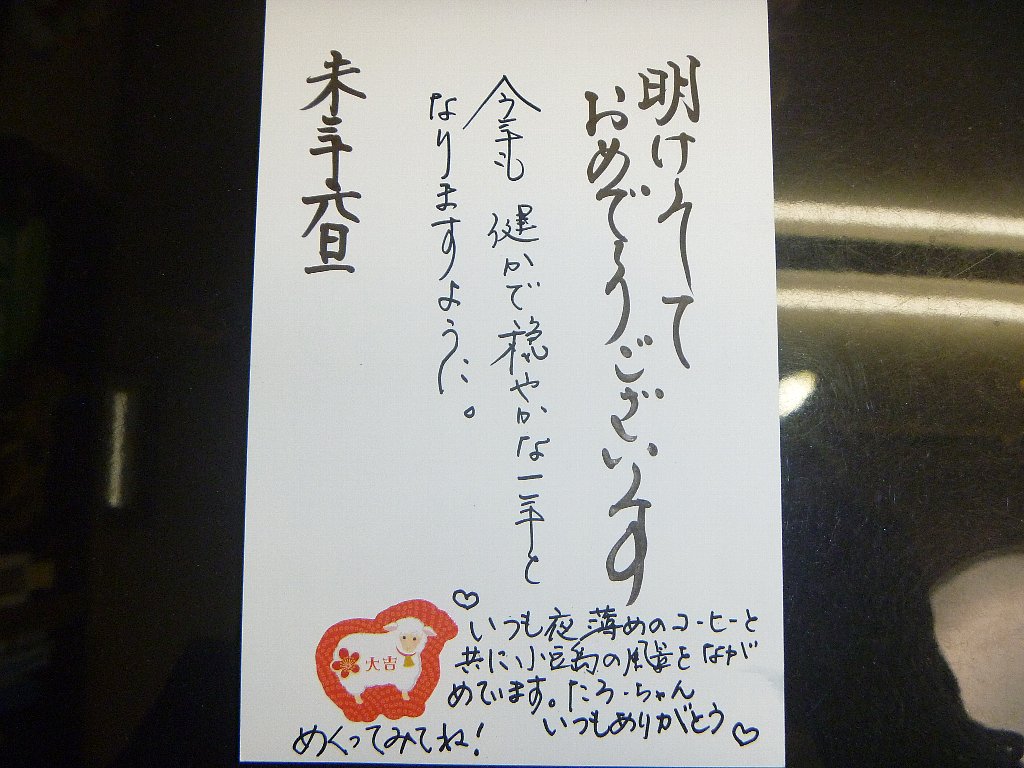 明けまして
おめでとうございます
今年も 健やかで穏やかな一年と
なりますように。
未年元旦
いつも夜薄めのコーヒーと
共に、小豆島の風景をなが
めています。たろーちゃん
いつもありがとう
大吉
めくってみてね!